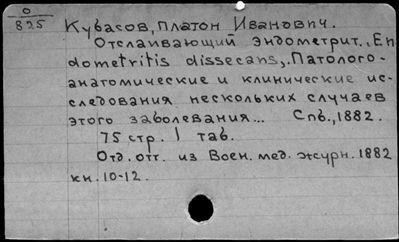 0
825
Кубасов, Платон Иванович.
Отслаивающий эндометрит.. En
dometritis dissecans,. Патолого-
анатомические и клинические ис-
следования нескольких случаев
этого заболевания... Спб., 1882.
75 стр. 1 таб.
Отд. отт. из Воен. мед. журн. 1882
кн. 10-12.